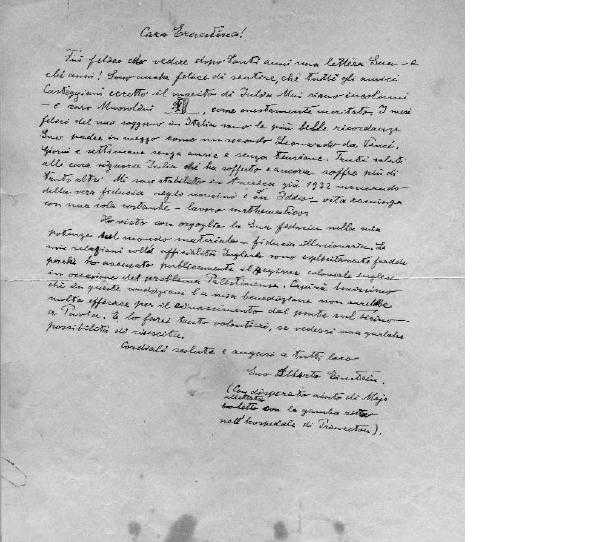 Cara Ernestina!
Fui felice di vedere dopo tanti anni una lettera Sua - e
che anni! Sono anche felice di sentire, che tutti gli amici
Casteggiani eccetto il marito di Julia Mai siano incolumi
- e caro Mussolini, come onestamente meritato. I mesi
felici del mio soggiorno in Italia sono le più belle ricordanze
Suo padre in mezzo come un secondo Leonardo da Vinci,
Giorni e settimane senza ansie e senza tensione. Tanti saluti
alla cara signora Julia che ha sofferto e ancora soffre più di
tutti altri. Mi sono stabilito in America già 1932 mancando
della vera fiducia negli uomini e in Iddio - vita zingaresca
con una sola costante - lavoro mathematico.
Ho visto con orgoglio la Sua fiducia nella mia
potenza nel mondo materiale - fiducia illusionaria. Le
mie relazioni colla officialità Inglese sono esplicitamente fredde
perchè ho accusato pubblicamente il regime coloniale inglese
in occasione del problema Palestinense. Capirà benissimo
che in queste condizioni la mia benedizione non sarebbe
molto efficace per il rinascimento del ponte sul Ticino
a Pavia. E lo farei tanto volontieri, se vedessi una qualche
possibilità di riuscita.
Cordiali saluti e auguri a tutti loro
Suo Alberto Einstein.
(Con disperato aiuto di Maja
a letto con la gamba rotta
nell'hospedale di Princeton).